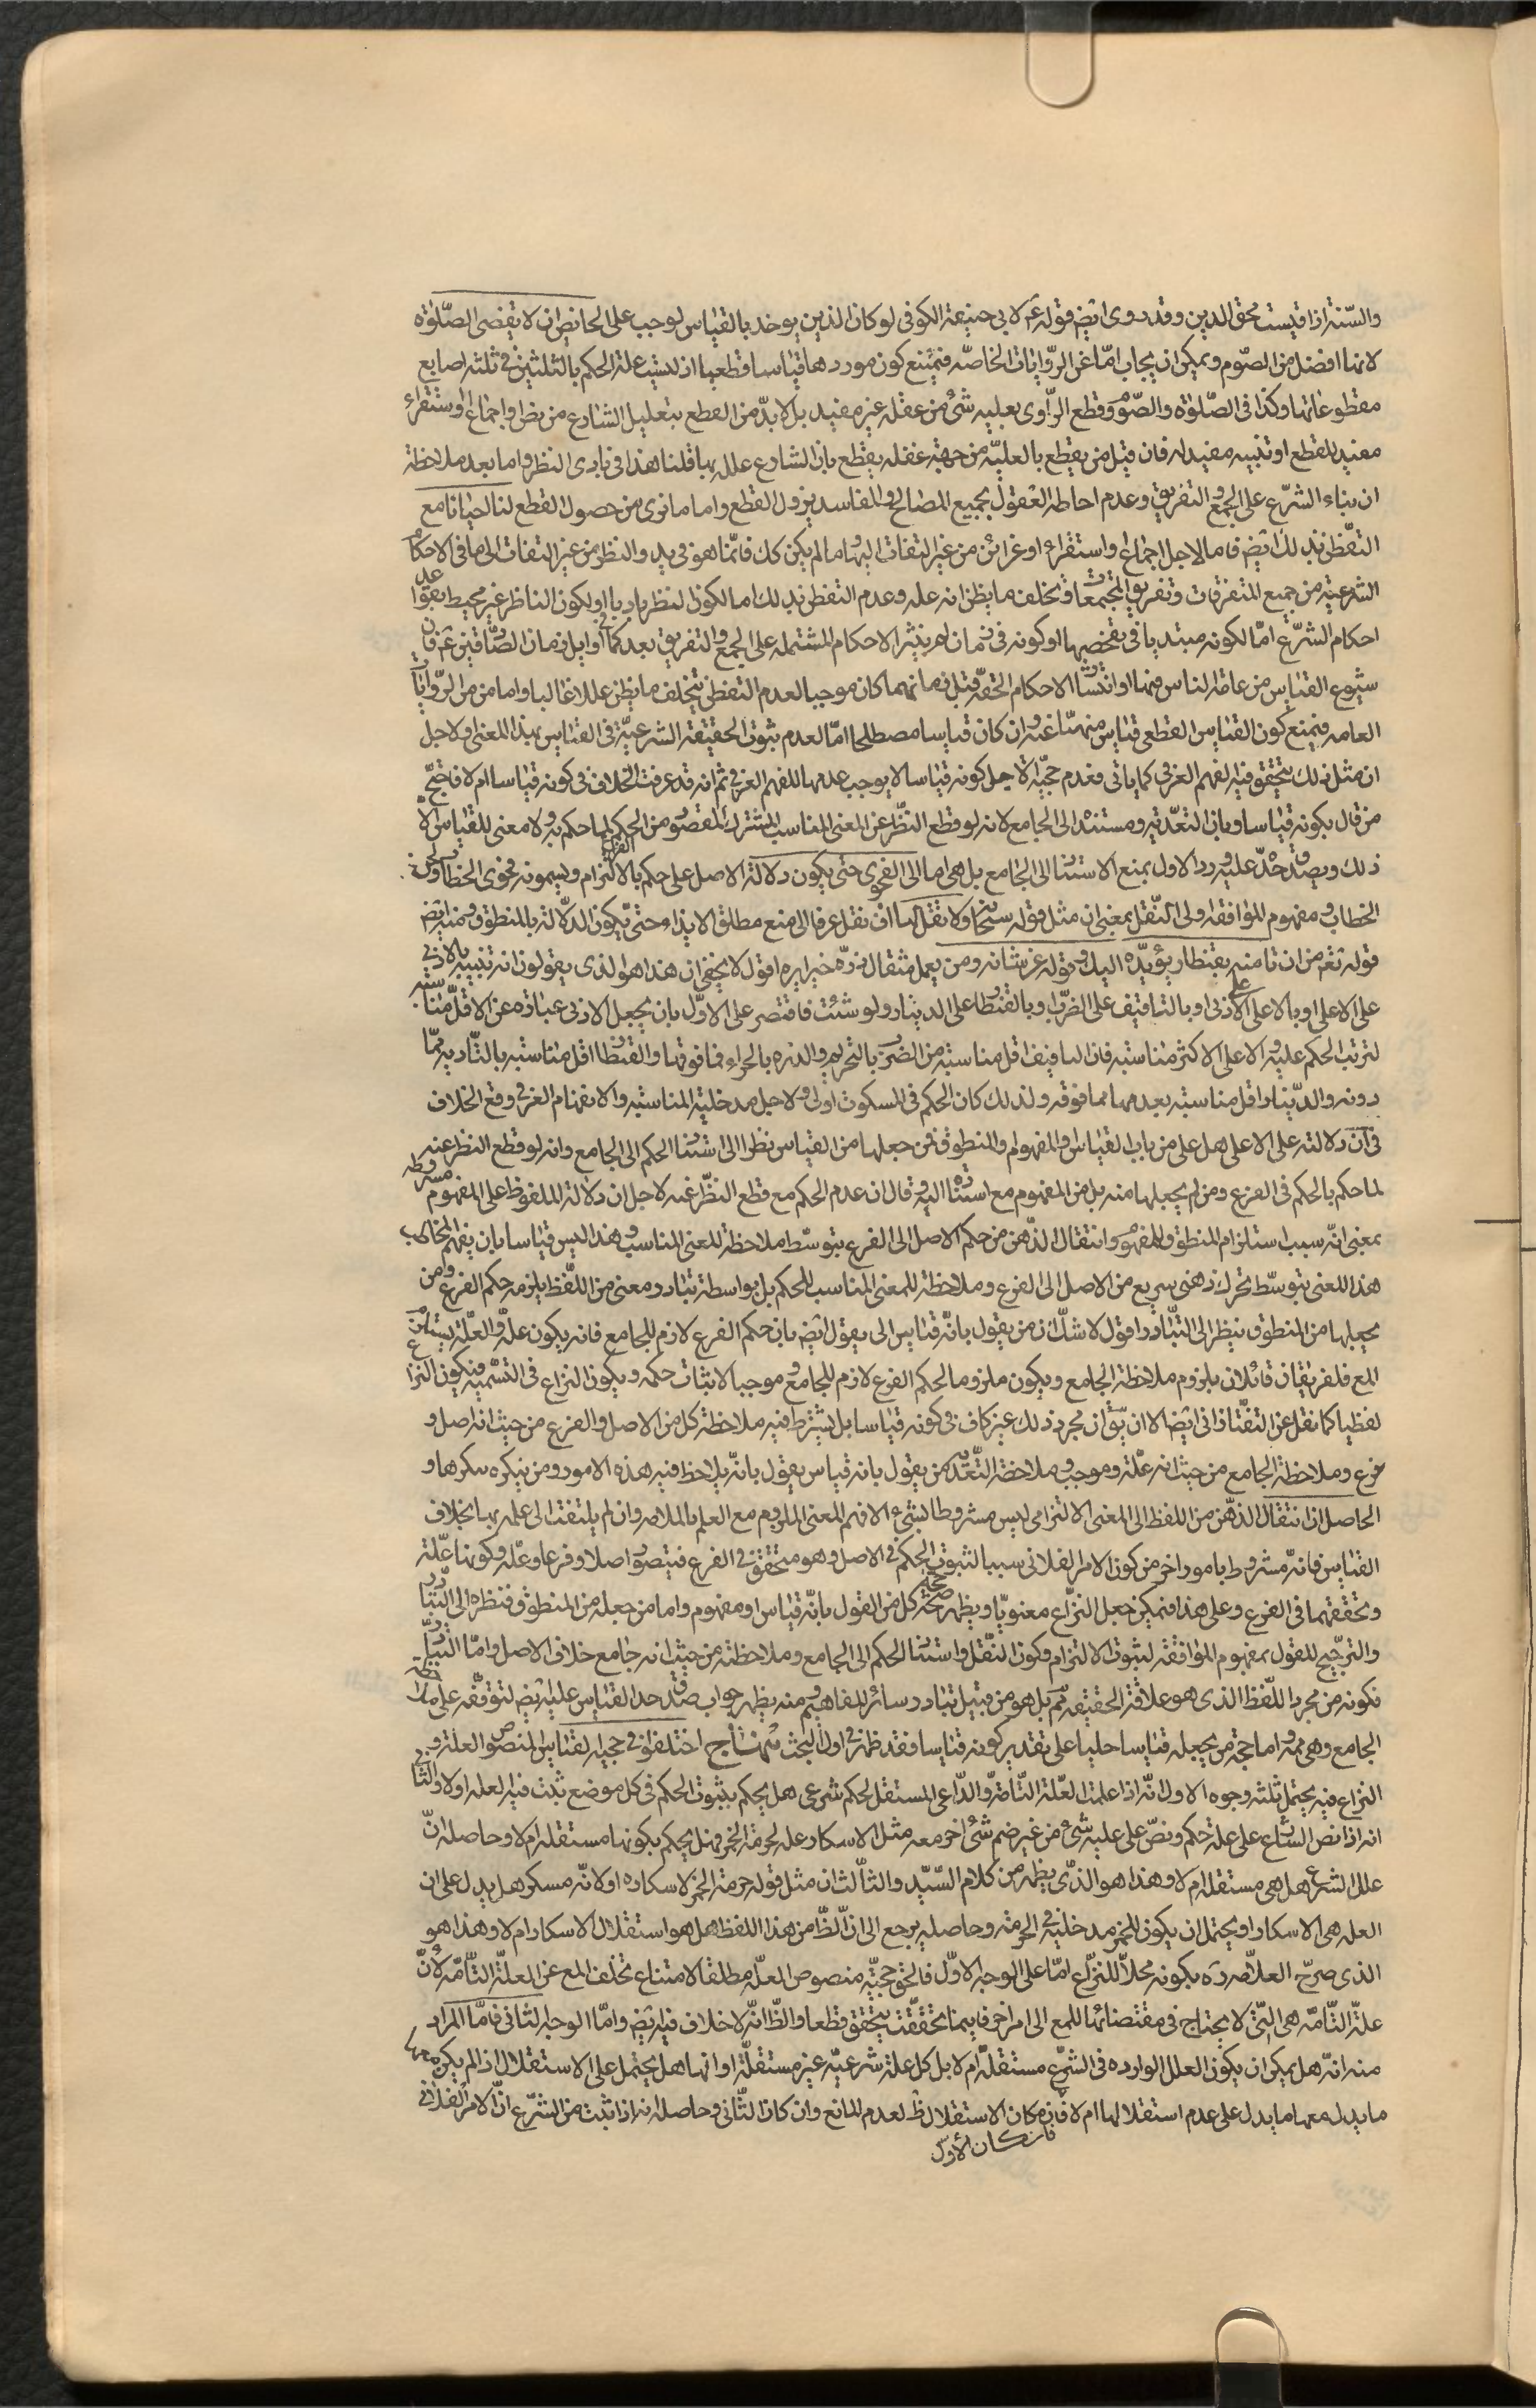 والسّنة اذا قيست محق الدين وقد روى ايضا قوله عم لابى حنيفة الكوفى لو كان الدين يوخذ بالقياس لوجب على الحائض ان لا يقضى الصّلوة
لانها افضل من الصّوم ويمكن ان يجاب امّا عن الرّوايات الخاصّه فنمنع كون موردها قياسا قطعيا اذ ليست علة الحكم بالثلثين فى ثلثه اصابع
مقطوعا بها وكذا فى الصّلوة والصّوم وقطع الرّاوى بعليه شئ من عقله غير مفيد بل لابدّ من القطع بتعليل الشارع من نص او اجماع او استقراء
مفيد للقطع او تنبيه مفيد له فان قيل من يقطع بالعليّه من جهة عقله يقطع بان الشارع علله بها قلنا هذا فى بادى النظر واما بعد ملاحظة
ان بناء الشرع على الجمع والتفريق وعدم احاطه العقول بجميع المصالح والمفاسد يزول القطع واما ما نرى من حصول القطع لنا احيانا مع
التفطّن بذلك ايضا فاما لاجل اجماع او استقراء او قرائن من غير التفات اليها وما لم يكن كك فانّما هو فى بدو النظر من غير التفات الى ما فى الاحكام
الشرعية من جميع المتفرقات وتفريق المجتمعات وتخلف ما يظن انه عله وعدم التفطن بذلك اما لكون النظر باديا او لكون الناظر غير محيط بقواعد
احكام الشرّع امّا لكونه مبتديا فى تفحصها او كونه فى زمان لم ينثر الاحكام المشتمله على الجمع والتفريق بعد كما فى اوايل زمان الصّادقين عم فان
شيوع القياس من عامّة الناس فيها وانتشار الاحكام الحقه قبل زمانهما كان موجبا لعدم التفطن بتخلف ما يظن عللا غالبا واما من الرّوايات
العامه فنمنع كون القياس القطعى قياس منهيّا عنه وان كان قياسا مصطلحا امّا لعدم ثبوت الحقيقة الشرعيّة فى القياس بهذا المعنى او لاجل
ان مثل ذلك يتحقق فيه الفهم العرفى كما ياتى فعدم حجيّة لاجل كونه قياسا لا يوجب عدمها للفهم العرفى ثم انه قد عرفت الخلاف فى كونه قياسا ام لا فتحجّ
من قال بكونه قياسا وبان التعدّية ومستندا الى الجامع لانه لو قطع النظّر عن المعنى المناسب المشترك المقصود من الحكم لما حكم به ولا معنى للقياس الّا
ذلك ويصدق حدّ عليه ورد الاول بمنع الاستناد الى الجامع بل هى اما الى الفحوى حتى يكون دلالة الاصل على حكم الفرع بالالتزام ويسمونه فحوى الخطاب ولحن
الخطاب ومفهوم الموافقه والى النّقل بمعنى ان مثل قوله سبحانه ولا تقل لهما اف نقل عرفا الى منع مطلق الايذاء حتى يكون الدّلالة بالمنطوق ومنه ايضا
قوله تعم من ان تامنه بقنطار يؤدّه اليك وقوله عز شانه ومن يعمل مثقال ذرّه خيرا يره اقول لا يخفى ان هذا هو الذى يقولون انه تنبيه بالادنى
على الاعلى او بالاعلى على الادنى او بالتافيف على الضّرب وبالقنطار على الدينار ولو شئت فاقتصر على الاوّل بان يجعل الادنى عبارة عن الاقلّ مناسبه
لترتب الحكم عليه والاعلى الاكثر مناسبه فان التافيف اقل مناسبته من الضرب بالتحريم والذره بالجزاء فما فوقها والقنطار اقل مناسبته بالتّادية ممّا
دونه والدّينار اقل مناسبته بعدمها مما فوقه ولذلك كان الحكم فى المسكوت اولى ولاجل مدخلية المناسبه والانفهام العرفى وقع الخلاف
فى ان دلالته على الاعلى هل على من باب القياس او المفهوم او المنطوق فمن جعلها من القياس نظر الى استناد الحكم الى الجامع وانه لو قطع النظر عنه
لما حكم بالحكم فى الفرع ومن لم يجعلها منه بل من المفهوم مع استناده اليه وقال ان عدم الحكم مع قطع النظّر عنه لاجل ان دلالة الملفوظ على المفهوم مشروطه
بمعنى انّه سبب استلزام المنطوق للمفهوم وانتقال الذّهن من حكم الاصل الى الفرع بتوسّط ملاحظة للمعنى المناسب وهذا ليس قياسا بان يفهم المخاطب
هذا المعنى بتوسّط تحرك ذهنى سريع من الاصل الى الفرع وملاحظة للمعنى المناسب للحكم بل بواسطة تبادر معنى من اللّفظ يلزمه حكم الفرع ومن
يجعلها من المنطوق ينظر الى التبّادر واقول لا شكّ ان من يقول بانّه قياس الى يقول ايضا بان حكم الفرع لازم للجامع فانه يكون علة والعلّة يستلزم
المع فلفريقان قائلان بلزوم ملاحظة الجامع ويكون ملزوما لحكم الفرع لازم للجامع وموجبا لاثبات حكمه ويكون النزاع فى التسّميه فيكون النزاع
لفظيا كما نقل عن التفتّازانى ايضا الا ان يقّ ان مجرد ذلك غير كاف فى كونه قياسا بل يشترط فيه ملاحظة كل من الاصل والفرع من حيث انه اصل و
فرع وملاحظة الجامع من حيث انه علّة وموجب وملاحظة التّعدّى فمن يقول بانه قياس يقول بانّه يلاحظ فيه هذه الامور ومن ينكره ينكرها و
الحاصل ان انتقال الذّهن من اللفظ الى المعنى الالتزامى ليس مشروطا بشئ الا فهم المعنى الملزوم مع العلم بالملازمه وان لم يلتفت الى علمه بها بخلاف
القياس فانّه مشروط بامور اخر من كون الامر الفلانى سببا لثبوت الحكم فى الاصل وهو متحقق فى الفرع فيتصور اصلا وفرعا وعلّه وكونها علّة
وتحققهما فى الفرع وعلى هذا فيمكن جعل النزّاع معنويّا ويظهر حجّة كل من القول بانّه قياس او مفهوم واما من جعله من المنطوق فنظره الى التبّادر
والترجّيح للقول بمفهوم الموافقّه لثبوت الالتزام وكون النّقل واستناد الحكم الى الجامع وملاحظته من حيث انه جامع خلاف الاصل وامّا التبّادر
فكونه من مجرد اللّفظ الذى هو علاقة الحقيقه مم بل هو من قبيل تبادر سائر المفاهيم ومنه يظهر جواب صدق حد القياس عليه ايضا لتوقفّه على ملاحظة
الجامع وهى ممه واما حجة من يجعله قياسا حليا على تقدير كونه قياسا فقد ظهر فى اول البحث منهاج اختلفوا فى حجيه القياس المنصوص العلة و
النزاع فيه يحتمل ثلثه وجوه الاول انّه اذا علمت العلّة التّامة والدّاعى المستقل لحكم شرعى هل يحكم بثبوت الحكم فى كل موضع ثبت فيه العله او لا والثّانى
انه اذا نص الشارع على علة حكم ونصّ على عليه شئ من غير ضم شئ اخر معه مثل الاسكار عله لحرمة الخمر فهل يحكم بكونها مستقله ام لا وحاصله انّ
علل الشرع هل هى مستقله ام لا وهذا هو الذّى يظهر من كلام السّيّد والثاّلث ان مثل قوله حرمت الخمر لاسكاره او لانّه مسكر هل يدل على ان
العله هى الاسكار او يحتمل ان يكون للخمر مدخلية فى الحرمة وحاصله يرجع الى ان الظّا من هذا اللفظ هل هو استقلال الاسكار ام لا وهذا هو
الذى صرّح العلاّمه ره بكونه محلاّ للنّزاع امّا على الوجه الاوّل فالحق حجيّة منصوص العلّه مطلقا لامتناع تخلّف المع عن العلّة التّامّه لانّ
علّة التّامّه هى التّى لا يحتاج فى مقتضائها للمع الى امر اخر فاينما تحققّت يتحقق قطعا والظّا انّه لا خلاف فيه ايضا وامّا الوجه الثانى فامّا المراد
منه انّه هل يمكن ان يكون العلل الوارده فى الشرّع مستقلّة ام لا بل كل علة شرعيّه غير مستقلّة او انها هل يحتمل على الاستقلال اذا لم يكن معها
ما يدل معها ما يدل على عدم استقلالها ام لا فان مكان الاستقلال ظ لعدم المانع وان كان الثّانى وحاصله انه اذا ثبت من الشرّع انّ الامر الفلانى
فان كان الاوّل